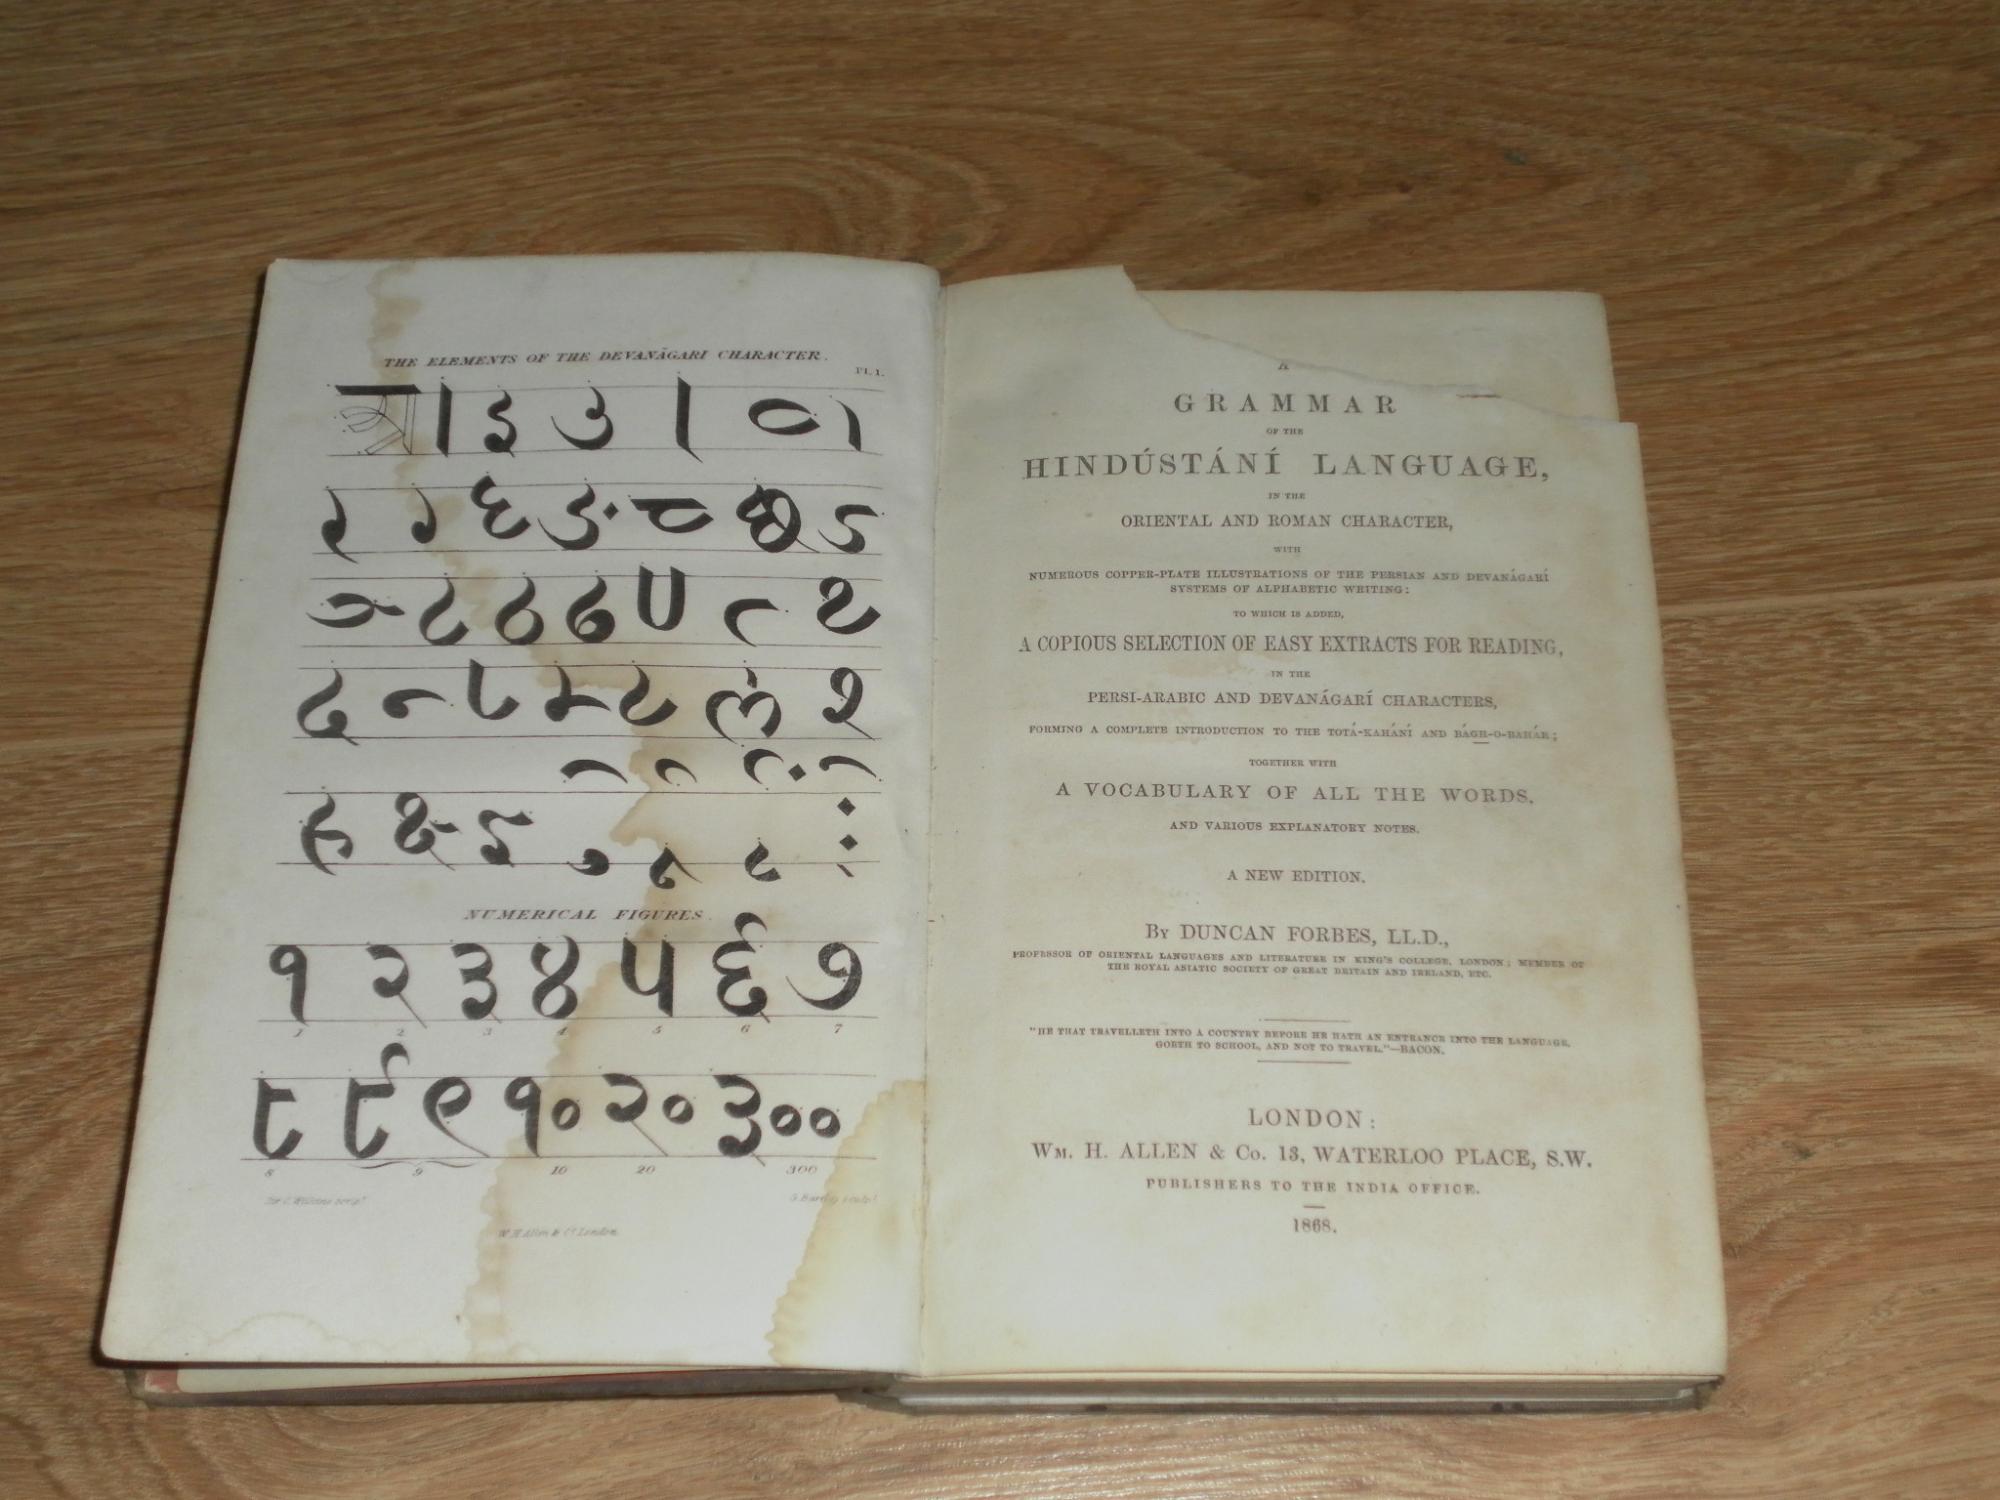 THE ELEMENTS OF THE DEVANĀGARI CHARACTER.
Pl. 1.
NUMERICAL FIGURES.
१ २ ३ ४ ५ ६ ७
1 2 3 4 5 6 7
८ ९ १० २० ३००
8 9 10 20 300
W. H. Allen & Co. London.
A
GRAMMAR
OF THE
HINDÚSTÁNÍ LANGUAGE,
IN THE
ORIENTAL AND ROMAN CHARACTER,
WITH
NUMEROUS COPPER-PLATE ILLUSTRATIONS OF THE PERSIAN AND DEVANÁGARÍ
SYSTEMS OF ALPHABETIC WRITING:
TO WHICH IS ADDED,
A COPIOUS SELECTION OF EASY EXTRACTS FOR READING,
IN THE
PERSI-ARABIC AND DEVANÁGARÍ CHARACTERS,
FORMING A COMPLETE INTRODUCTION TO THE TOTÁ-KAHÁNÍ AND BÁGH-O-BAHÁR;
TOGETHER WITH
A VOCABULARY OF ALL THE WORDS,
AND VARIOUS EXPLANATORY NOTES.
A NEW EDITION.
BY DUNCAN FORBES, LL.D.,
PROFESSOR OF ORIENTAL LANGUAGES AND LITERATURE IN KING'S COLLEGE, LONDON; MEMBER OF
THE ROYAL ASIATIC SOCIETY OF GREAT BRITAIN AND IRELAND, ETC.
"HE THAT TRAVELLETH INTO A COUNTRY BEFORE HE HATH AN ENTRANCE INTO THE LANGUAGE,
GOETH TO SCHOOL, AND NOT TO TRAVEL."—BACON.
LONDON:
WM. H. ALLEN & Co. 13, WATERLOO PLACE, S.W.
PUBLISHERS TO THE INDIA OFFICE.
1868.